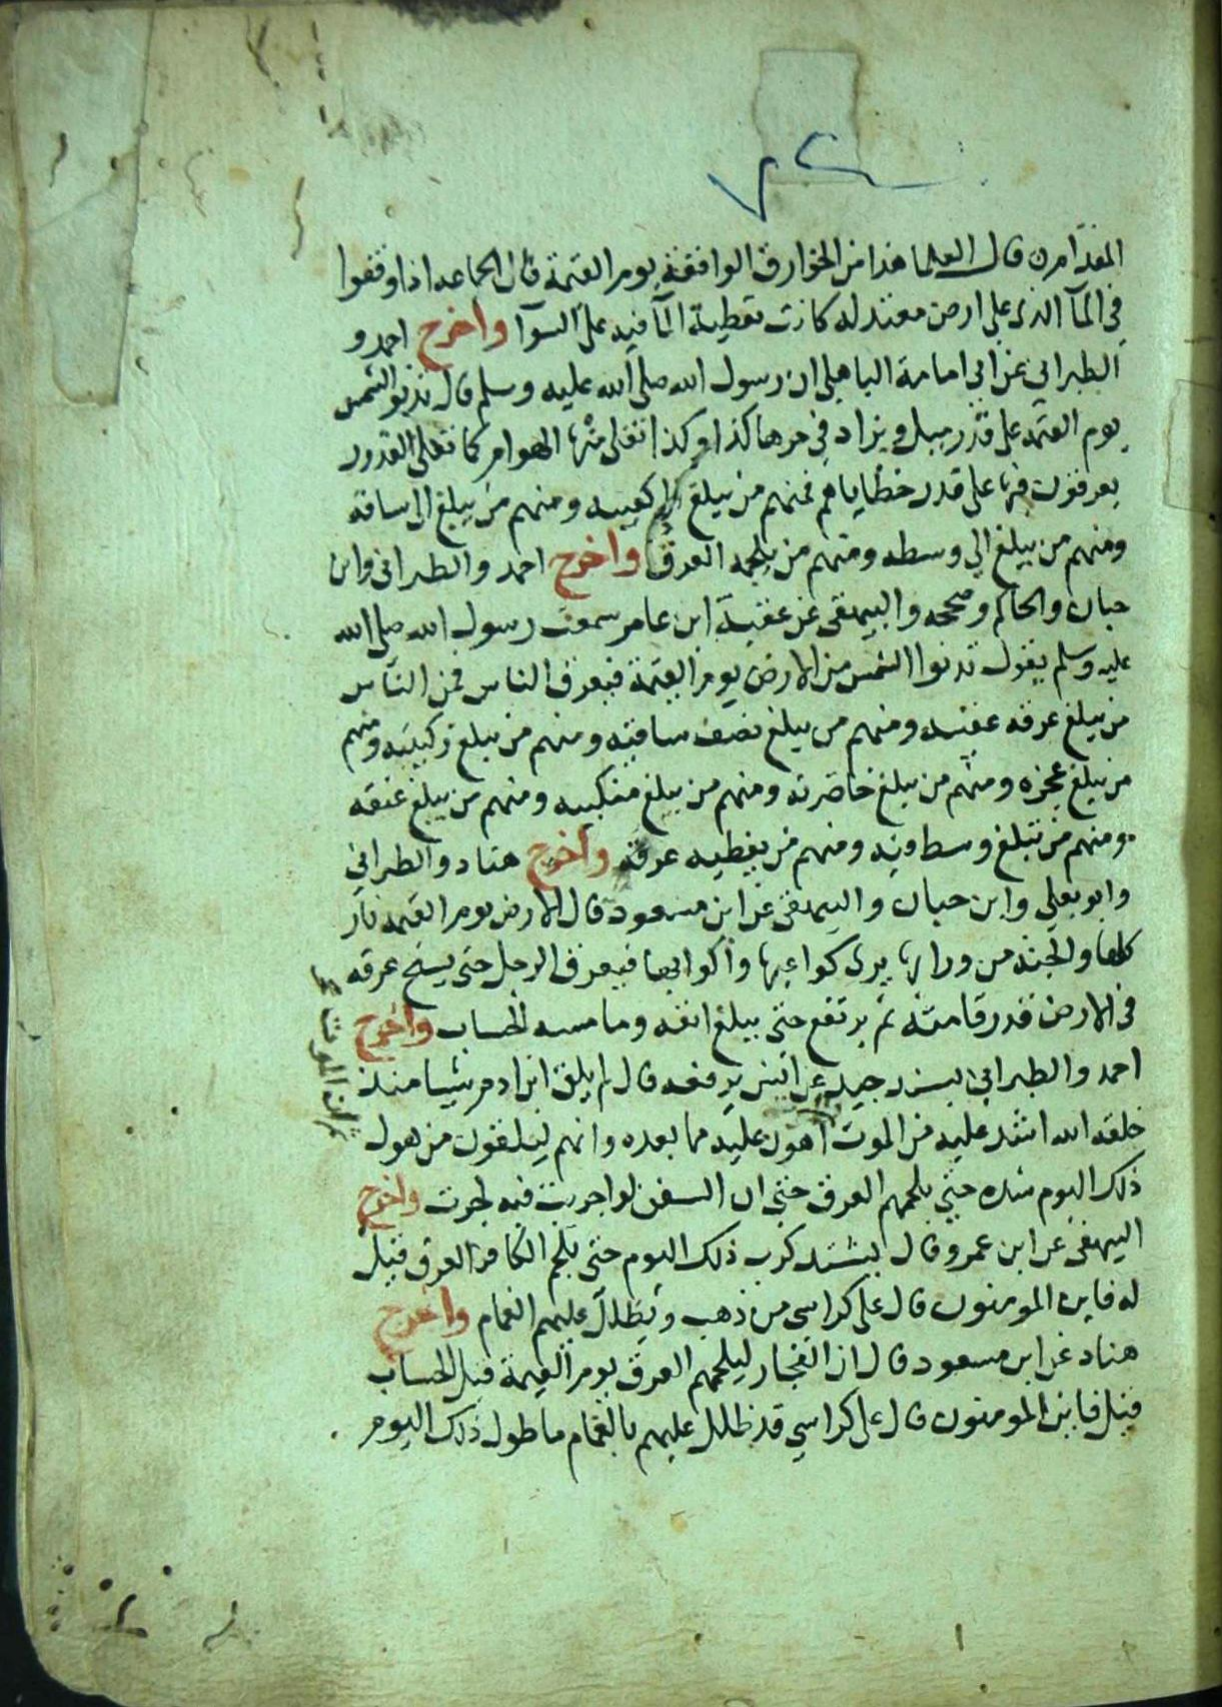 المقدامرن قال العلما هذا من الخوارق الواقعة يوم القيمة فان الجماعه اذا وقفوا
في المآ الذي علي ارض معتدله كانت تغطية المآ فيه علي السوآ واخرج احمد و
الطبراني عن ابي امامة الباهلي ان رسول الله صلي الله عليه وسلم قال تدنو الشمس
يوم القيمه علي قدر ميل ويزاد في حرها كذا وكذا تغلي منها الهوام كما تغلي القدور
يعرقون فيها علي قدر خطاياهم فمنهم من يبلغ الي كعبيه ومنهم من يبلغ الي ساقه
ومنهم من يبلغ الي وسطه ومنهم من يلجمه العرق واخرج احمد والطبراني وابن
حبان والحاكم وصححه والبيهقي عن عقبة ابن عامر سمعت رسول الله صلي الله
عليه وسلم يقول تدنوا الشمس من الارض يوم القيمة فيعرق الناس فمن الناس
من يبلغ عرقه عقبيه ومنهم من يبلغ نصف ساقيه ومنهم من يبلغ ركبتيه ومنهم
من يبلغ عجزه ومنهم من يبلغ خاصرته ومنهم من يبلغ منكبيه ومنهم من يبلغ عنقه
ومنهم من يبلغ وسط فيه ومنهم من يغطيه عرقه واخرج هناد والطبراني
وابو يعلي وابن حبان والبيهقي عن ابن مسعود قال الارض يوم القيمه نار
كلها والجنه من ورائها يري كواعبها واكوابها فيعرق الرجل حتي يسيح عرقه
في الارض قدر قامته ثم يرتفع حتي يبلغ انفه وما مسه الحساب واخرج
احمد والطبراني بسند جيد عن انس يرفعه قال لم يلق ابن ادم شيا منذ
خلقه الله اشد عليه من الموت اهون عليه مما بعده وانهم ليلقون من هول
ذلك اليوم شده حتي يلجمهم العرق حتي ان السفن لو اجريت فيه لجرت واخرج
البيهقي عن ابن عمرو قال يشتد كرب ذلك اليوم حتي يلجم الكافر العرق قيل
له فاين المومنون قال علي كراسي من ذهب ويظلل عليهم الغمام واخرج
هناد عن ابن مسعود قال ان الفجار ليلجمهم العرق يوم القيمة قبل الحساب
قيل فاين المومنون قال علي كراسي قد ظلل عليهم بالغمام ما طول ذلك اليوم
ان الموت